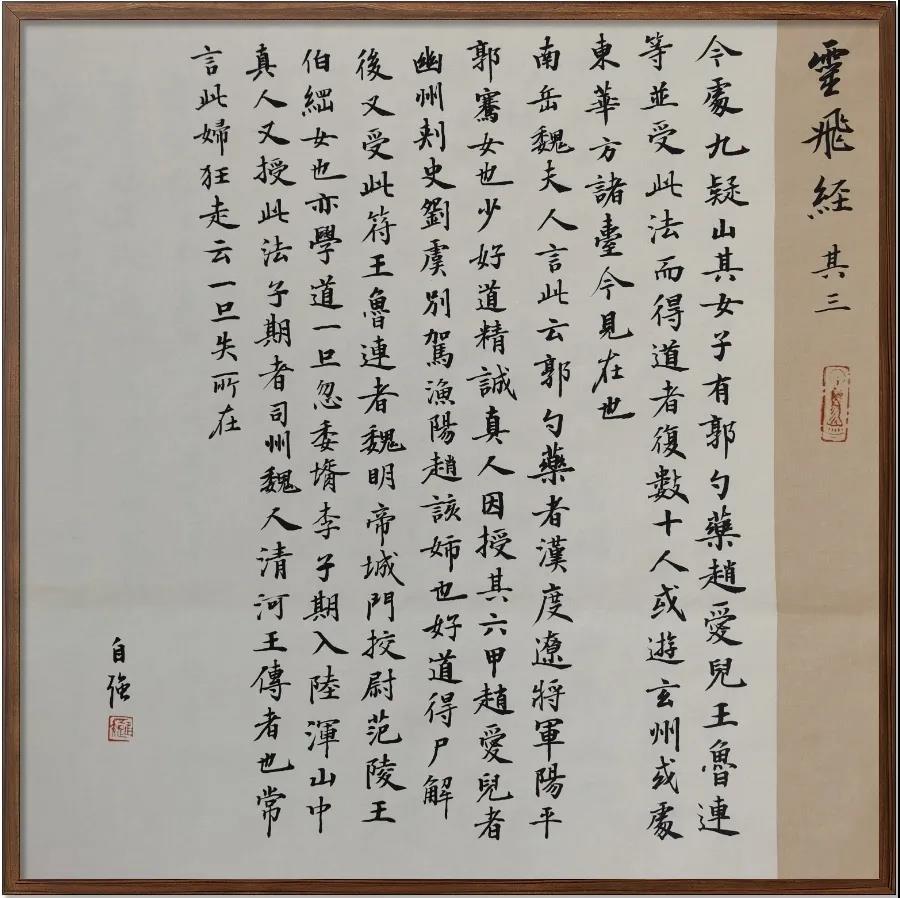 靈飛經 其三
今處九疑山其女子有郭勺藥趙愛兒王魯連
等並受此法而得道者復數十人或遊玄州或處
東華方諸臺今見在也
南岳魏夫人言此云郭勺藥者漢度遼將軍陽平
郭騫女也少好道精誠真人因授其六甲趙愛兒者
幽州刾史劉虞別駕漁陽趙該姉也好道得尸解
後又受此符王魯連者魏明帝城門挍尉范陵王
伯綱女也亦學道一旦忽委壻李子期入陸渾山中
真人又授此法子期者司州魏人清河王傳者也常
言此婦狂走云一旦失所在
自強